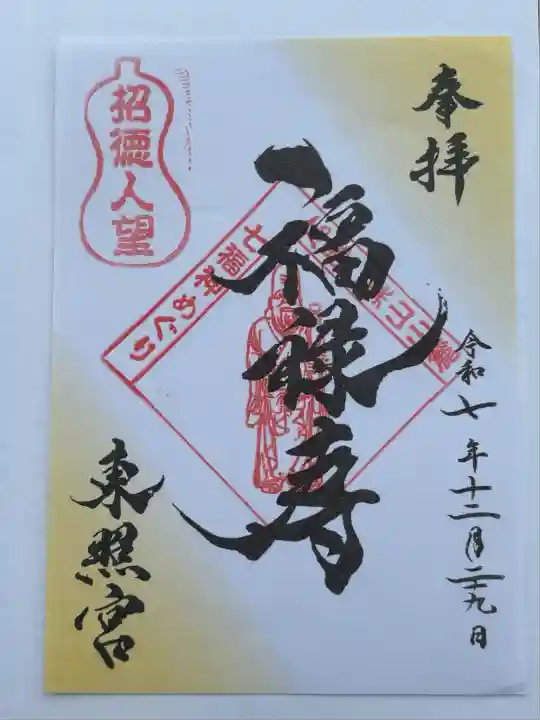 奉拝
令和七年十二月二十九日
福禄寿
七福神めぐり
招徳人望
東照宮